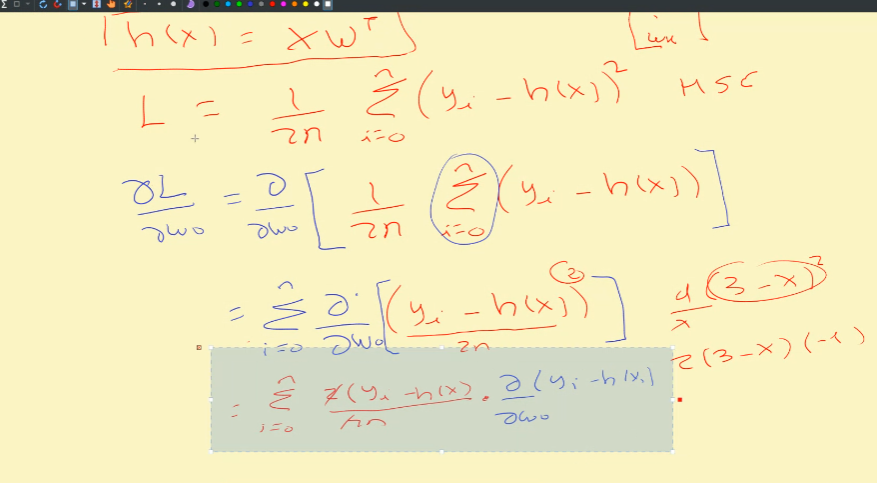 h(x) = XW^T
L = 1/2n Σ_{i=0}^{n} (y_i - h(x))^2 MSE
∂L/∂w_0 = ∂/∂w_0 [ 1/2n Σ_{i=0}^{n} (y_i - h(x)) ]
= Σ_{i=0}^{n} ∂/∂w_0 [ (y_i - h(x))^2 / 2n ]
d/x (3 - x)^2
2(3 - x)(-1)
= Σ_{i=0}^{n} 2(y_i - h(x)) / 2n · ∂/∂w_0 (y_i - h(x))